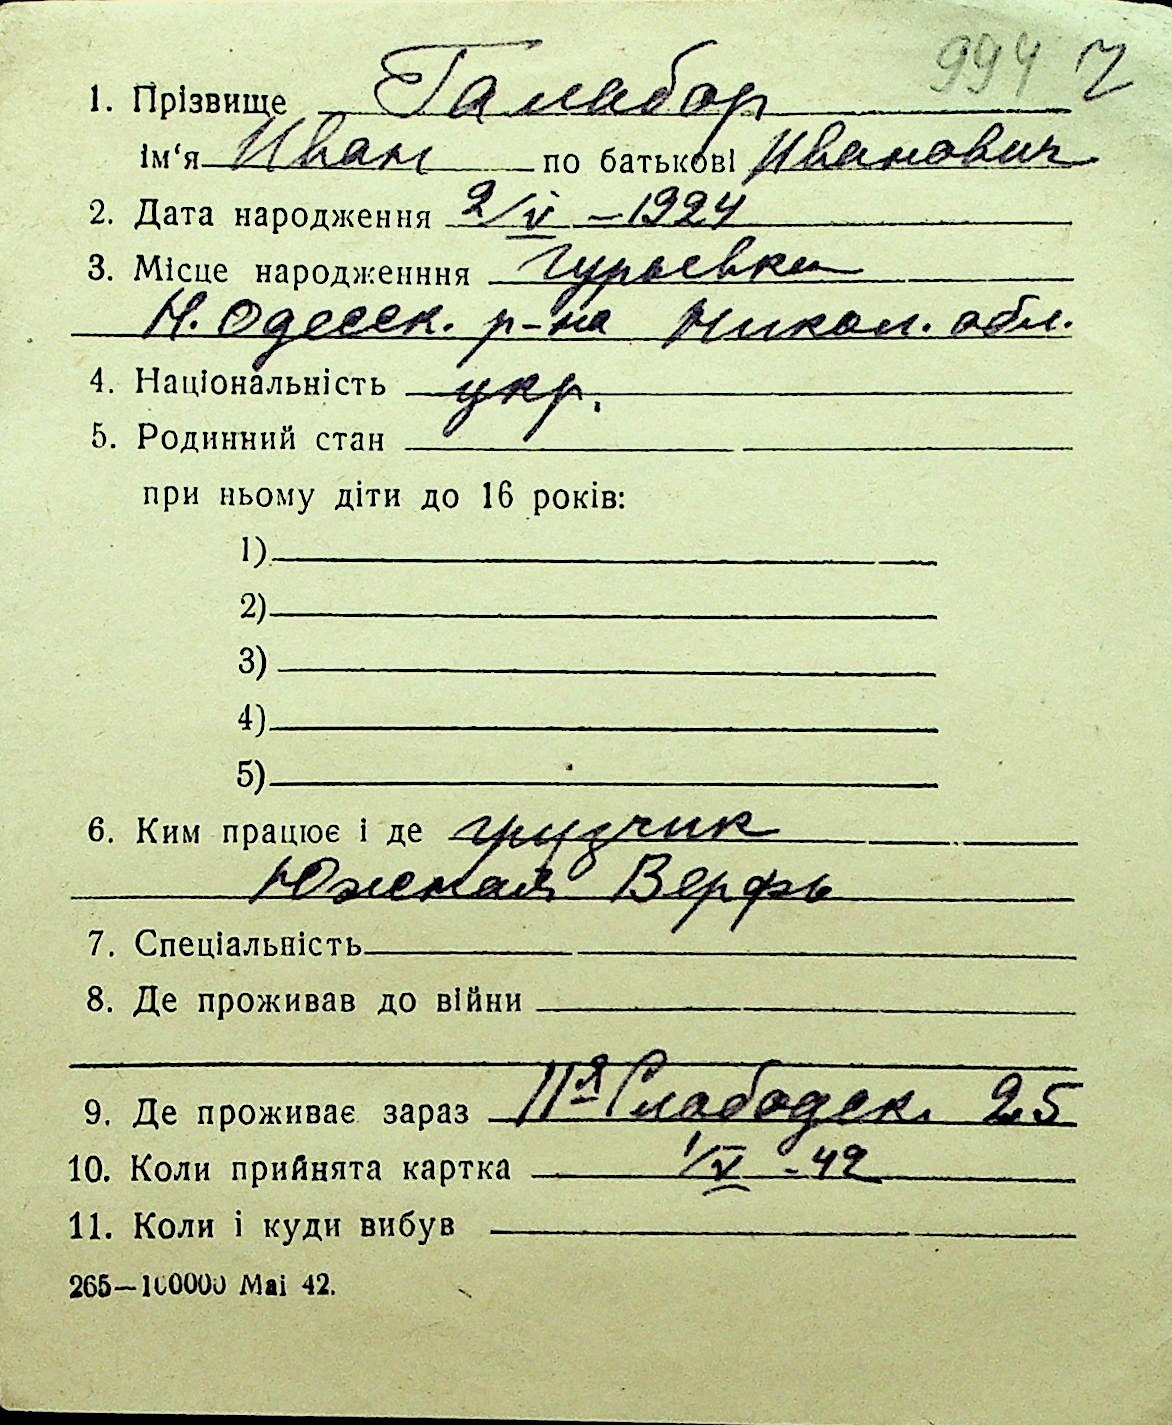 994 ч
1. Прізвище Галабор
ім‘я Иван по батькові Иванович
2. Дата народження 2/V – 1924
3. Місце народженння Гурьевка
Н. Одесск. р-на Никол. обл.
4. Національність укр.
5. Родинний стан
при ньому діти до 16 років:
1)
2)
3)
4)
5)
6. Ким працює і де грузчик
Южная Верфь
7. Спеціальність
8. Де проживав до війни
9. Де проживає зараз 11я Слободск. 25
10. Коли прийнята картка 1/V - 42
11. Коли і куди вибув
265—100000 Маі 42.